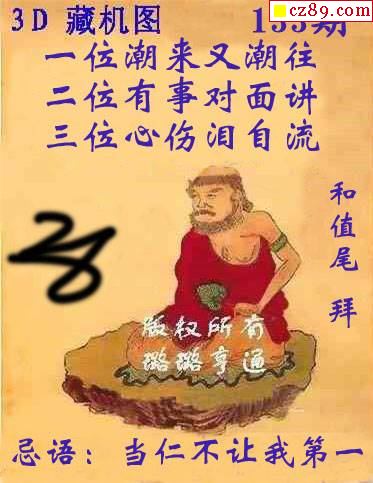 3D 藏机图
cz89.com
一位潮来又潮往
二位有事对面讲
三位心伤泪自流
和值尾 拜
版权所有
璐璐亨通
忌语：当仁不让我第一